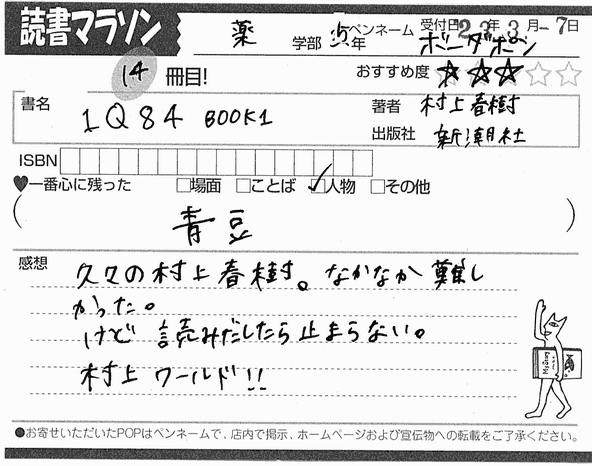 読書マラソン
薬 学部 年 ペンネーム ボーダポン 受付日 23年 3月-7日
14 冊目!
おすすめ度 ★★★☆☆
書名 1Q84 BOOK1
著者 村上春樹
出版社 新潮社
ISBN
♥一番心に残った □場面 □ことば ☑人物 □その他
( 青豆 )
感想 久々の村上春樹。なかなか難し
かった。
けど 読みだしたら止まらない。
村上 ワールド!!
●お寄せいただいたPOPはペンネームで、店内で掲示、ホームページおよび宣伝物への転載をご了承ください。